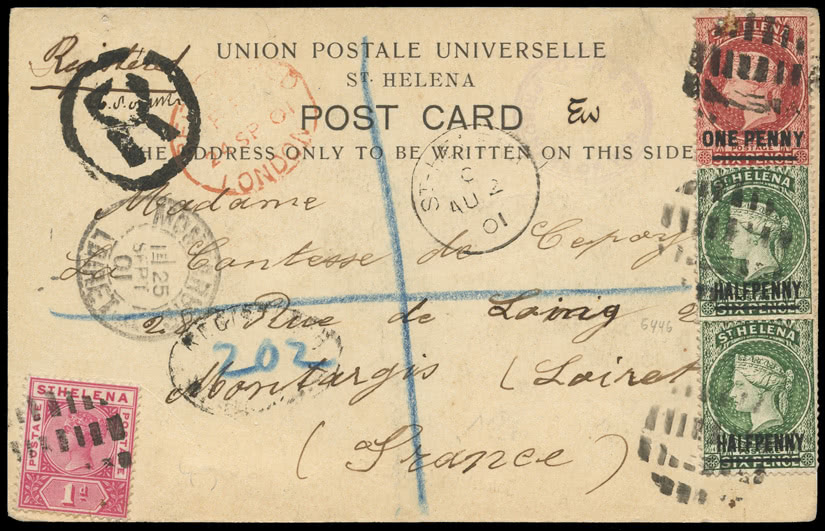 Registered
R
UNION POSTALE UNIVERSELLE
ST. HELENA
POST CARD
Ew
THE ADDRESS ONLY TO BE WRITTEN ON THIS SIDE
LONDON
24 SP 01
ST. HELENA
C
AU 2
01
Madame
La Comtesse de Cepoy
2 Rue de Loing 2
Montargis (Loiret
(France)
MONTARGIS
LOIRET
25
SEPT
01
REGISTERED
202
5446
ONE PENNY
SIX PENCE
ST HELENA
HALFPENNY
SIX PENCE
ST HELENA
HALFPENNY
SIX PENCE
ST HELENA
POSTAGE
POSTAGE
1D